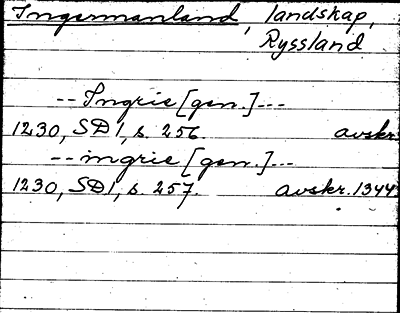 Ingermanland, landskap,
Ryssland
-- Ingrie [gen.] ---
1230, SD 1, s. 256. avskr.
-- ingrie [gen.] ---
1230, SD 1, s. 257. avskr. 1344.